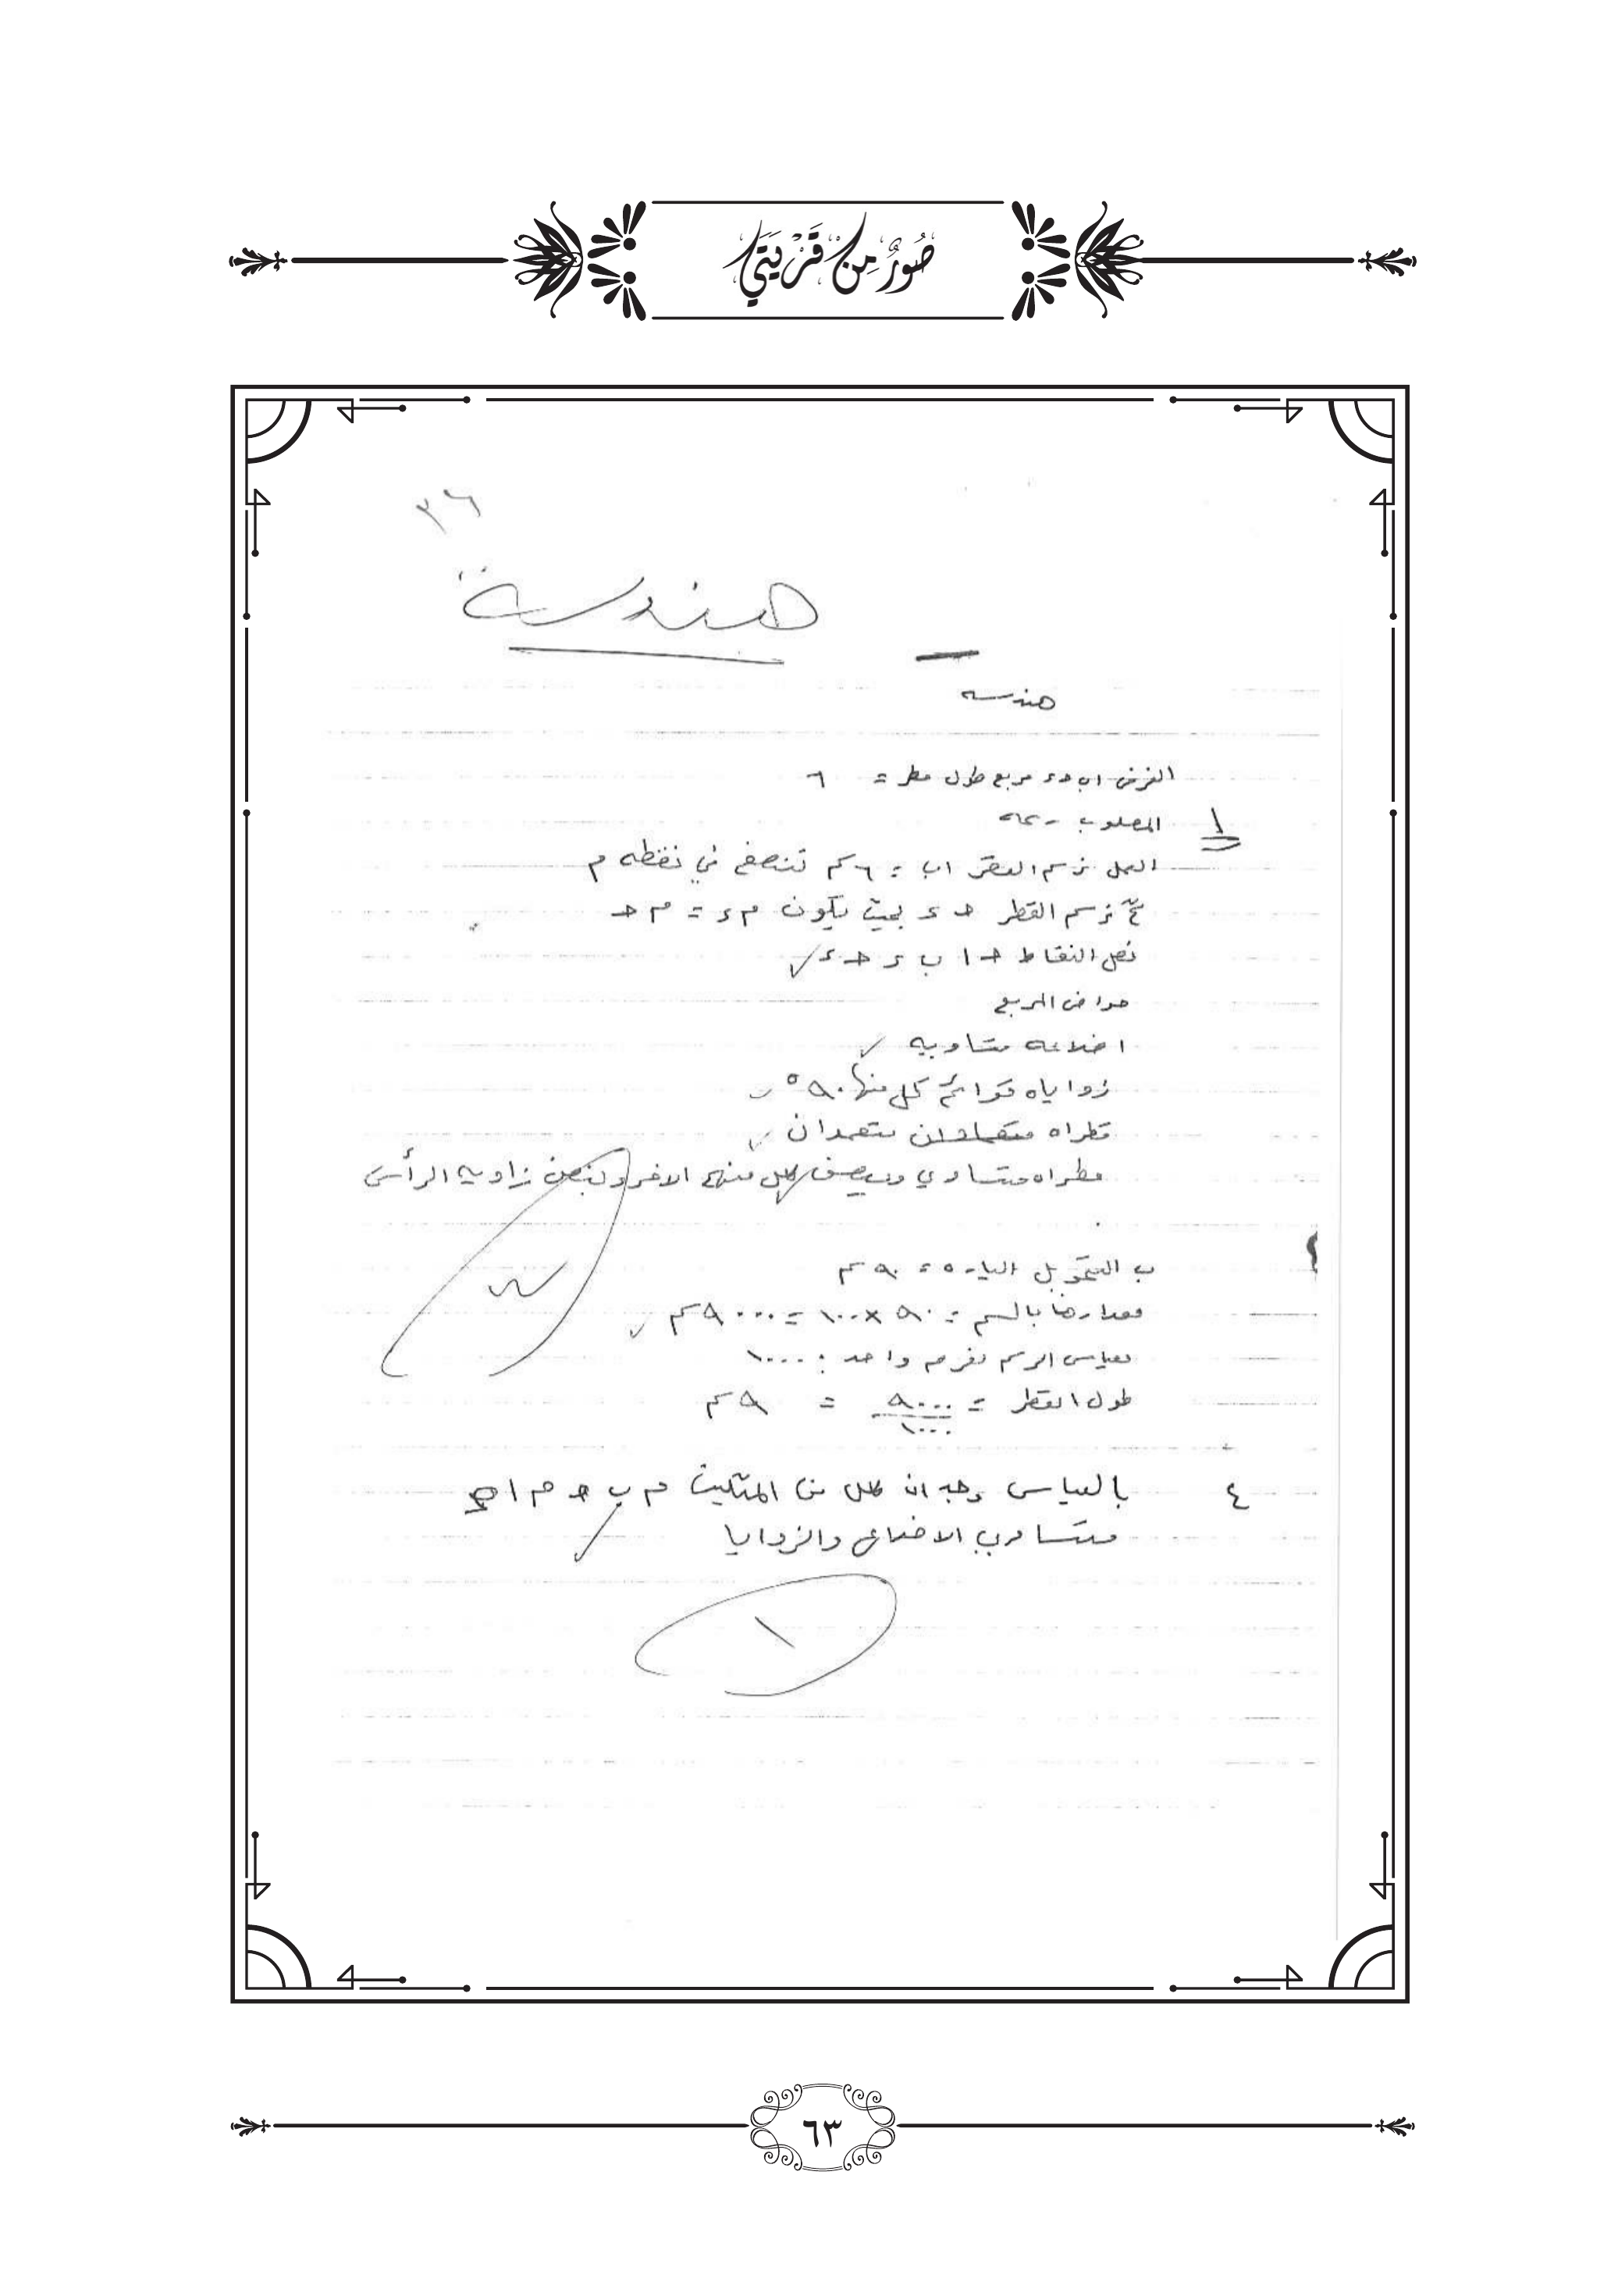 صُورٌ مِن قَرْيَتِي
٣٦
هندسة
هندسه
الفرض ا ب حـ ء مربع طول قطر = ٦
١ المطلوب رسمه
العمل نرسم القطر ا ب = ٦ سم تنصف في نقطه م
ثم نرسم القطر حـ ء بحيث يكون م ء = م حـ
نصل النقاط حـ ا ب ء حـ ء
خواص المربع
اضلاعه متساويه
زواياه قوائم كل منها ٩٠°
قطراه متعمدان
قطراه متساوي وينصف كل منهم الاخر وينصف زاويه الرأس
ب التحويل = ٩٠ م
مقدارها بالسم = ٩٠ × ١٠٠ = ٩٠٠٠ سم
مقياس الرسم نفرضه واحد : ١٠٠٠
طول القطر = ٩٠٠٠ / ١٠٠٠ = ٩ سم
٤ بالقياس وجد ان كل من المثلين م ب حـ م ا
متساوي الاضلاع والزوايا
١
٦٣